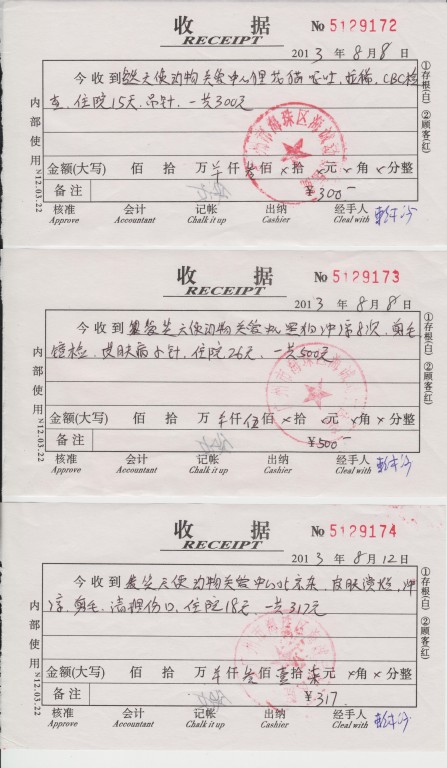 收 据 No 5129172
RECEIPT
2013 年 8 月 8 日
今收到 天使动物关爱中心 猫 呕吐, CBC检
查, 住院15天, 吊针, 一共300元
金额(大写) 佰 拾 万 仟 叁佰 × 拾 × 元 × 角 × 分整
备 注 ¥300—
核准 会计 记帐 出纳 经手人
Approve Accountant Chalk it up Cashier Cleal with
内部使用
N12.03.22
①存根(白) ②顾客(红)
收 据 No 5129173
RECEIPT
2013 年 8 月 8 日
今收到 天使动物关爱 狗 冲凉8次, 剪毛
镜检, 皮肤病 针, 住院26天, 一共500元
金额(大写) 佰 拾 万 仟 伍佰 × 拾 × 元 × 角 × 分整
备 注 ¥500—
核准 会计 记帐 出纳 经手人
Approve Accountant Chalk it up Cashier Cleal with
内部使用
N12.03.22
①存根(白) ②顾客(红)
收 据 No 5129174
RECEIPT
2013 年 8 月 12 日
今收到 天使动物关爱中心 京东, 皮肤溃烂, 冲
凉, 剪毛, 清理伤口, 住院18天, 一共317元
金额(大写) 佰 拾 万 仟 叁佰 壹拾 柒元 × 角 × 分整
备 注 ¥317.
核准 会计 记帐 出纳 经手人
Approve Accountant Chalk it up Cashier Cleal with
内部使用
N12.03.22
①存根(白) ②顾客(红)